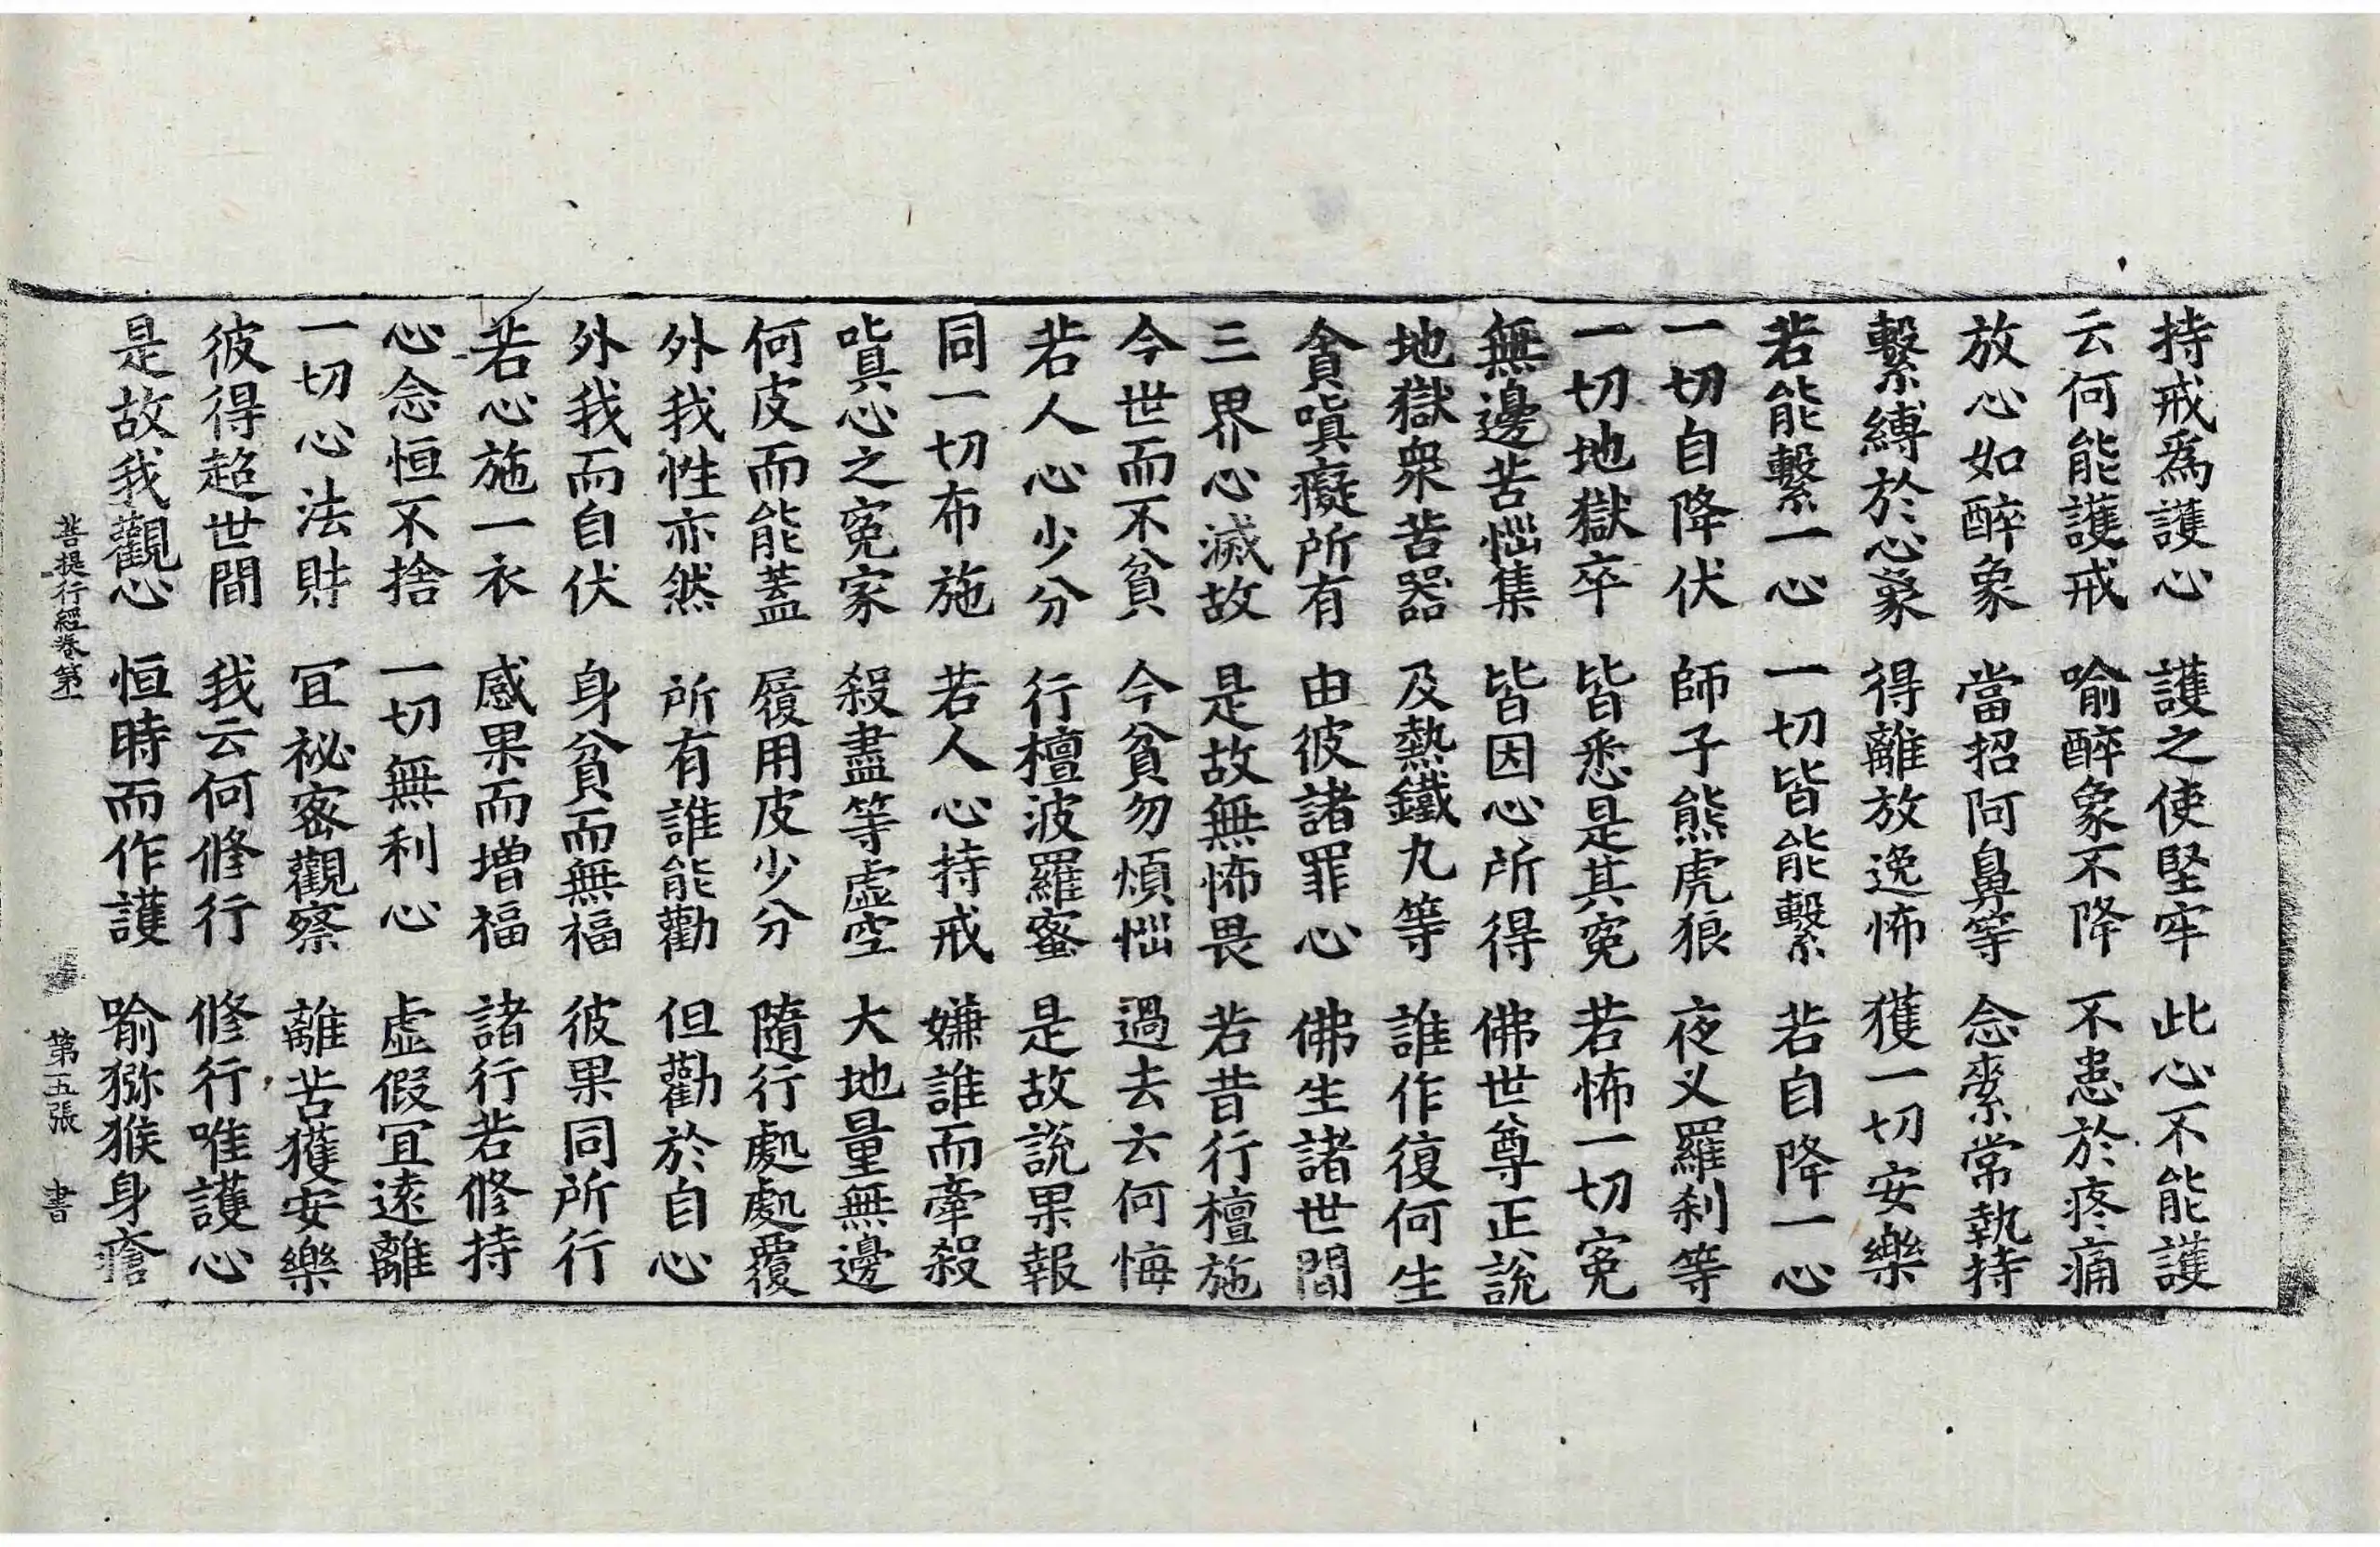 持戒為護心 護之使堅牢 此心不能護
云何能護戒 喻醉象不降 不患於疼痛
放心如醉象 當招阿鼻等 念索常執持
繫縛於心象 得離放逸怖 獲一切安樂
若能繫一心 一切皆能繫 若自降一心
一切自降伏 師子熊虎狼 夜叉羅剎等
一切地獄卒 皆悉是其冤 若怖一切冤
無邊苦惱集 皆因心所得 佛世尊正說
地獄衆苦器 及熱鐵丸等 誰作復何生
貪嗔癡所有 由彼諸罪心 佛生諸世間
三界心滅故 是故無怖畏 若昔行檀施
今世而不貧 今貧勿煩惱 過去云何悔
若人心少分 行檀波羅蜜 是故說果報
同一切布施 若人心持戒 嫌誰而牽殺
嗔心之冤家 殺盡等虛空 大地量無邊
何皮而能蓋 履用皮少分 隨行處處覆
外我性亦然 所有誰能勸 但勸於自心
外我而自伏 身貧而無福 彼果同所行
若心施一衣 感果而增福 諸行若修持
心念恒不捨 一切無利心 虛假宜遠離
一切心法財 宜祕密觀察 離苦獲安樂
彼得超世間 我云何修行 修行唯護心
是故我觀心 恒時而作護 喻獼猴身瘡
菩提行經卷第一 第五張 書